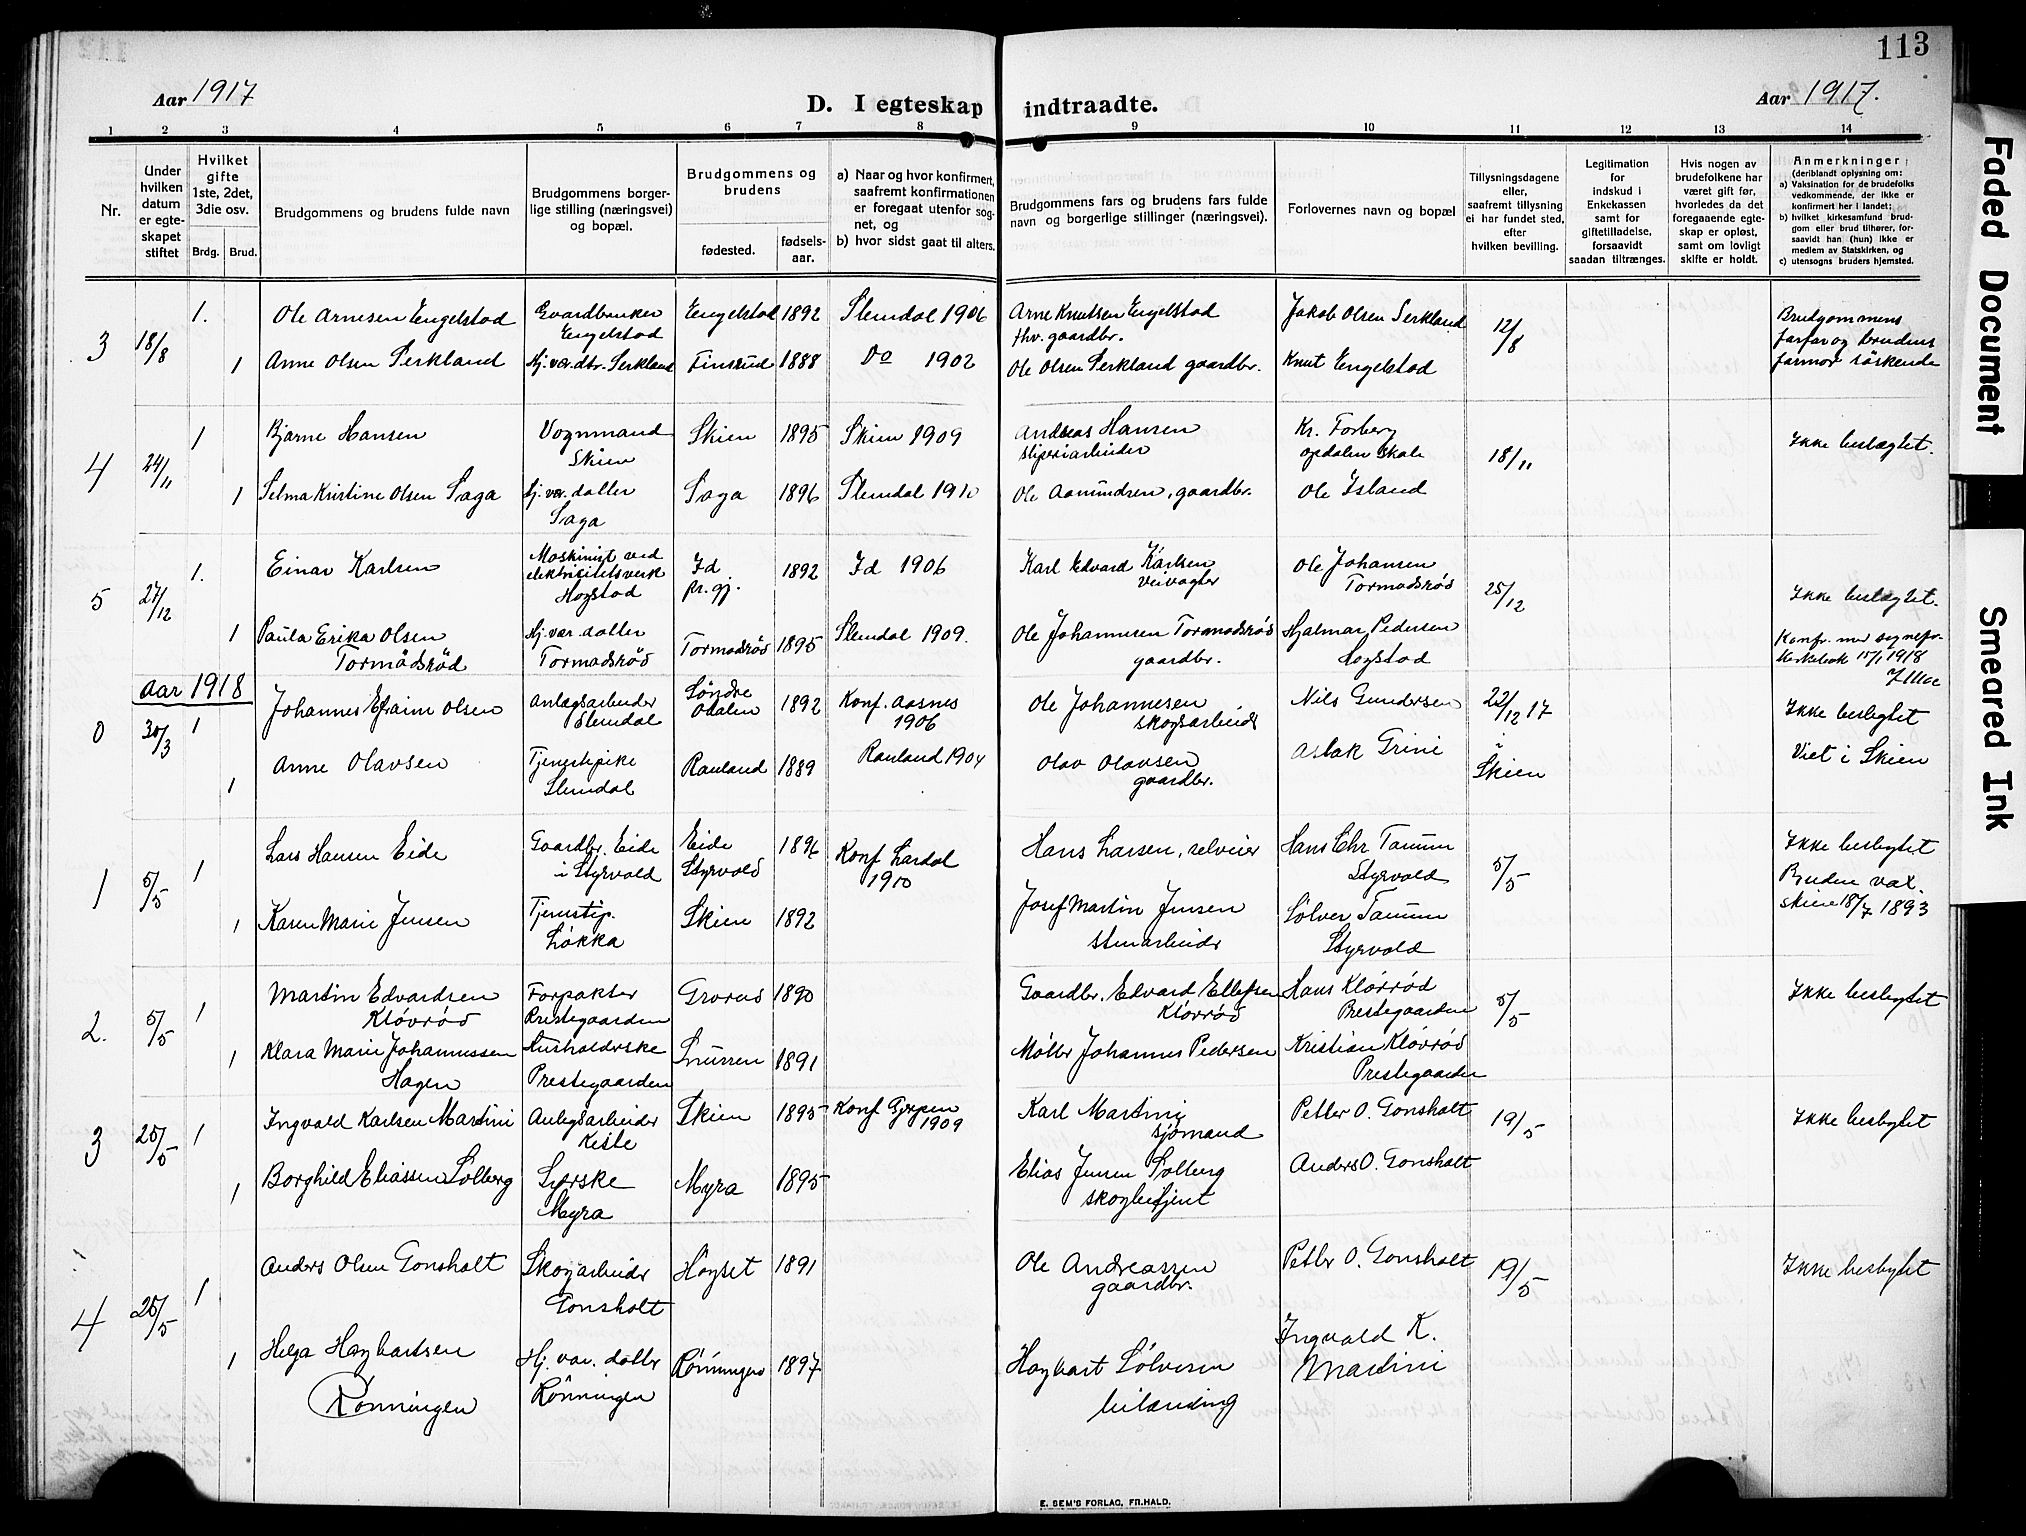 113
Aar 1917
D. I egteskap indtraadte.
Aar 1917.
1 2 3 4 5 6 7 8 9 10 11 12 13 14
Nr.
Under hvilken datum er egteskapet stiftet
Hvilket gifte 1ste, 2det, 3die osv.
Brdg. Brud.
Brudgommens og brudens fulde navn
Brudgommens borgerlige stilling (næringsvei) og bopæl.
Brudgommens og brudens
fødested.
fødselsaar.
a) Naar og hvor konfirmert, saafremt konfirmationen er foregaat utenfor sognet, og
b) hvor sidst gaat til alters.
Brudgommens fars og brudens fars fulde navn og borgerlige stillinger (næringsvei).
Forlovernes navn og bopæl
Tillysningsdagene eller, saafremt tillysning ei har fundet sted, efter hvilken bevilling.
Legitimation for indskud i Enkekassen samt for giftetilladelse, forsaavidt saadan tiltrænges.
Hvis nogen av brudefolkene har været gift før, hvorledes da det foregaaende egteskap er opløst, samt om lovligt skifte er holdt.
Anmerkninger
(deriblandt oplysning om:
a) Vaksination for de brudefolks vedkommende, der ikke er konfirmert her i landet;
b) hvilket kirkesamfund brudgom eller brud tilhører, forsaavidt han (hun) ikke er medlem av Statskirken, og
c) utensogns bruders hjemsted.
3 18/8 1. Ole Arnesen Engelstad Gaardbruker Engelstad Engelstad 1892 Slemdal 1906 Arne Knutsen Engelstad fhv. gaardbr. Jakob Olsen Serkland 12/8 Brudgommens farfar og brudens farmor søskende
1 Anne Olsen Serkland Hj. vær. dtr. Serkland Finsrud 1888 Do 1902 Ole Olsen Serkland gaardbr. Knut Engelstad
4 24/11 1 Bjarne Hansen Vognmand Skien Skien 1895 Skien 1909 Andreas Hansen sliperiarbeider Kr. Forberg Opdalen skole 18/11 Ikke beslegtet.
1 Selma Kristine Olsen Saga Hj. vær. datter Saga Saga 1896 Slemdal 1910 Ole Aamundsen, gaardbr. Ole Island
5 27/12 1. Einar Karlsen Maskinist ved elektricitetsverk Hogstad Id pr. gj. 1892 Id 1906 Karl Edvard Karlsen veivogter Ole Johansen Tormodsrød 25/12 Ikke beslegtet.
1 Paula Erika Olsen Tormodsrød Hj. vær. datter Tormodsrød Tormodsrød 1895 Slemdal 1909. Ole Johannesen Tormodsrød gaardbr. Hjalmar Pedersen Hogstad Konf. med sognepr. kirkebok 15/1 1918
Aar 1918
0 30/3 1 Johannes Efraim Olsen Anlægsarbeider Slemdal Søndre Odalen 1892 Konf. Aasnes 1906 Ole Johannesen skogsarbeider Nils Gundersen 22/12 17 i Skien Ikke beslegtet
1 Anne Olavsen Tjenestepike Slemdal Rauland 1889 Rauland 1904 Olav Olavsen gaardbr. Aslak Grini Viet i Skien
1 5/5 1 Lars Hansen Eide Gaardbr. Eide i Styrvold Eide Styrvold 1896 Konf Lardal 1910 Hans Larsen, selveier Hans Chr Tanum Styrvold 5/5 Ikke beslegtet
1 Karen Marie Jensen Tjenestep. Løkka Skien 1892 Josef Martin Jensen stenarbeider Sølver Tanum Styrvold Bruden vax. Skien 18/7 1893
2. 5/5 1 Martin Edvardsen Kløvrød Forpakter Prestegaarden Grorud 1890 Gaardbr. Edvard Ellefsen Kløvrød Hans Kløvrød Prestegaarden 5/5 Ikke beslegtet
1 Klara Marie Johannessen Hagen Husholderske Prestegaarden Snurren 1891 Møller Johannes Pedersen Kristian Kløvrød Prestegaarden
3 26/5 1 Ingvald Karlsen Martini Anlegsarbeider Kiste Skien 1895 Konf Gjerpen 1909 Karl Martini sjømand Petter O. Gonsholt 19/5 Ikke beslegtet
1 Borghild Eliassen Solberg Syerske Myra Myra 1895 Elias Jensen Solberg skogbetjent Anders O. Gonsholt
4 26/5 1 Anders Olsen Gonsholt Skogarbeider Gonsholt Høgset 1891 Ole Andreassen gaardbr. Petter O. Gonsholt 19/5 Ikke beslegtet
1 Helga Hagbartsen Rønningen Hj. vær. datter Rønningen Rønningen 1897 Hagbart Sølvesen leilending Ingvald K. Martini
E. SEM'S FORLAG, FR.HALD.
Faded Document
Smeared Ink